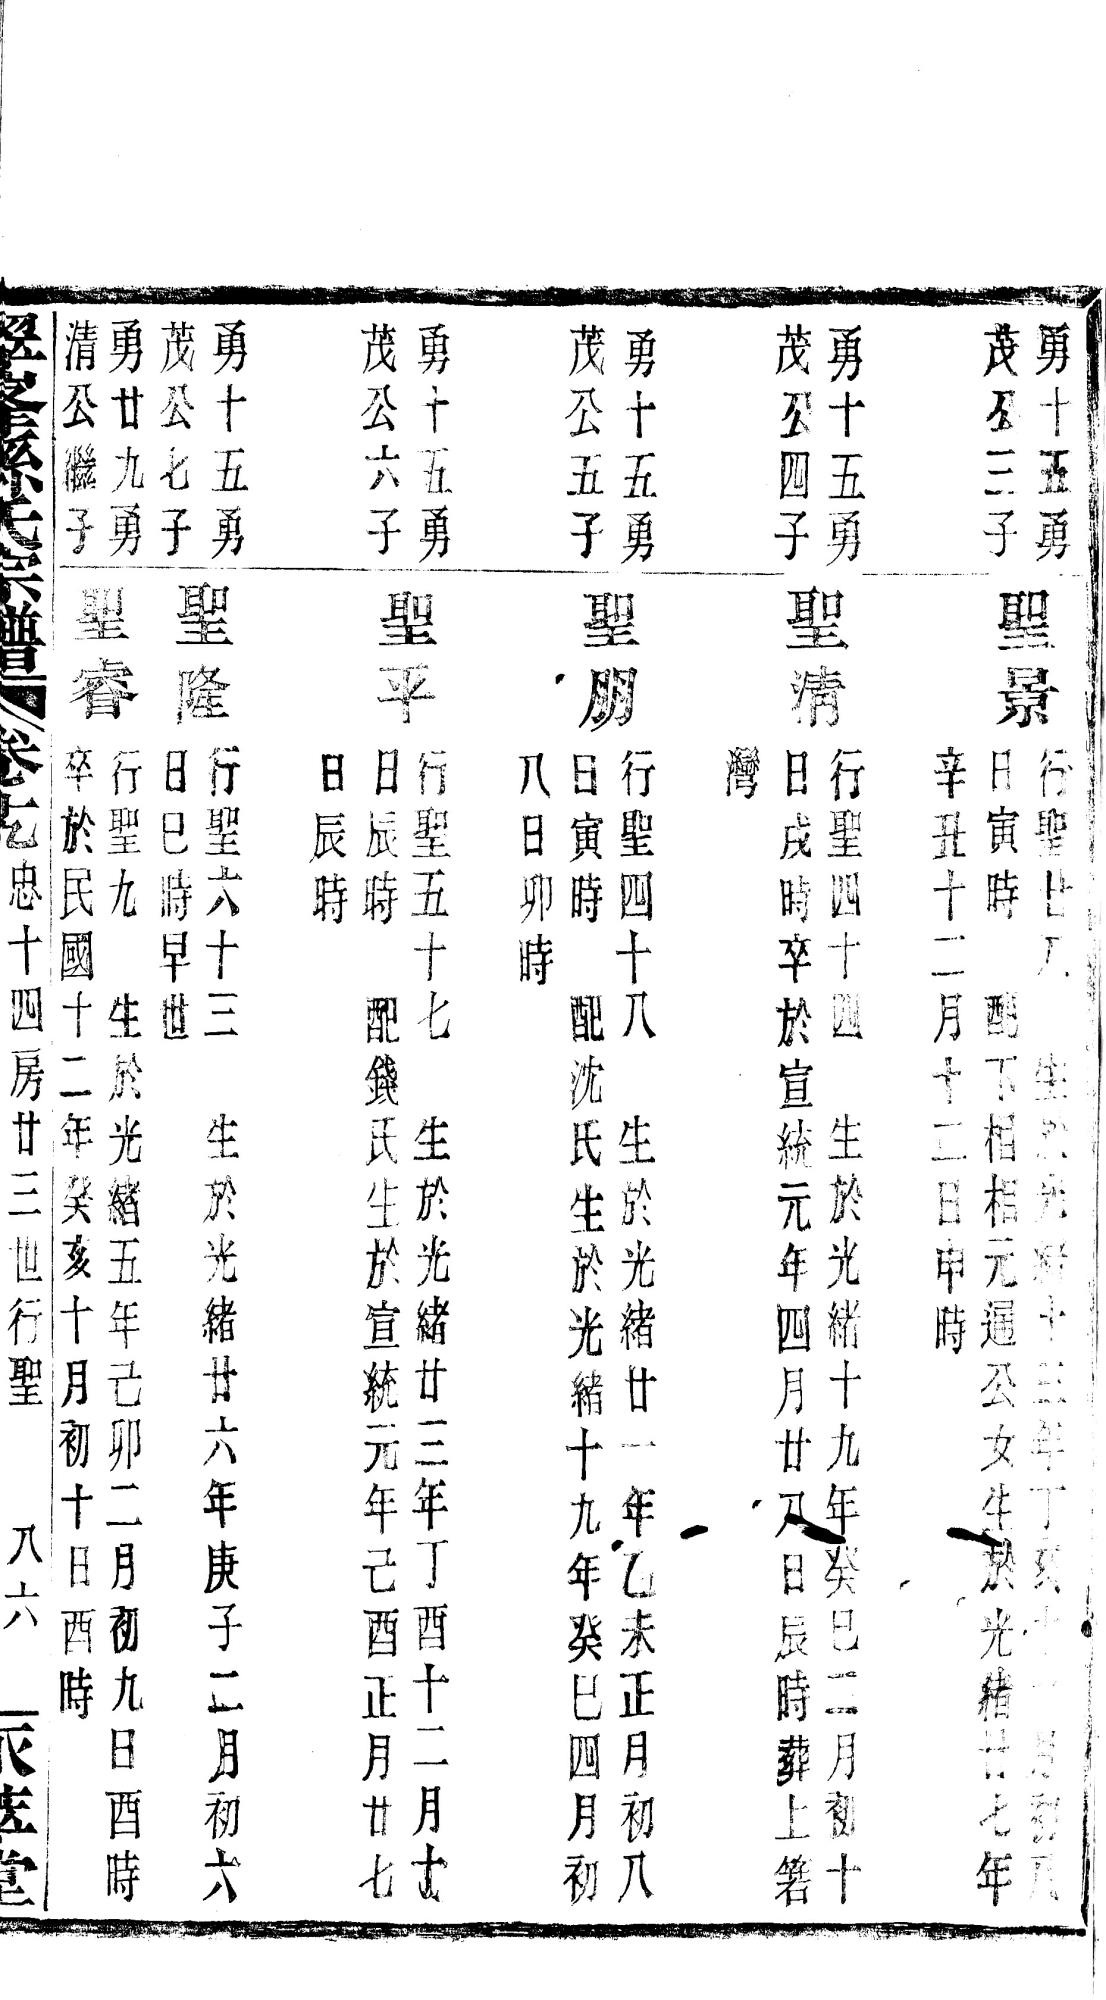 勇十五勇
茂公三子
聖景
行聖廿八 生於光緒十三年丁亥十一月初八
日寅時 配下相相元通公女生於光緒廿七年
辛丑十二月十二日申時
勇十五勇
茂公四子
聖清
行聖四十四 生於光緒十九年癸巳二月初十
日戌時卒於宣統元年四月廿八日辰時葬上箬
灣
勇十五勇
茂公五子
聖朋
行聖四十八 生於光緒廿一年乙未正月初八
日寅時 配沈氏生於光緒十九年癸巳四月初
八日卯時
勇十五勇
茂公六子
聖平
行聖五十七 生於光緒廿三年丁酉十二月十
日辰時 配錢氏生於宣統元年己酉正月廿七
日辰時
勇十五勇
茂公七子
聖隆
行聖六十三 生於光緒廿六年庚子二月初六
日巳時早世
勇廿九勇
清公繼子
聖睿
行聖九 生於光緒五年己卯二月初九日酉時
卒於民國十二年癸亥十月初十日酉時
氏宗譜 卷 忠十四房廿三世行聖 八六 堂